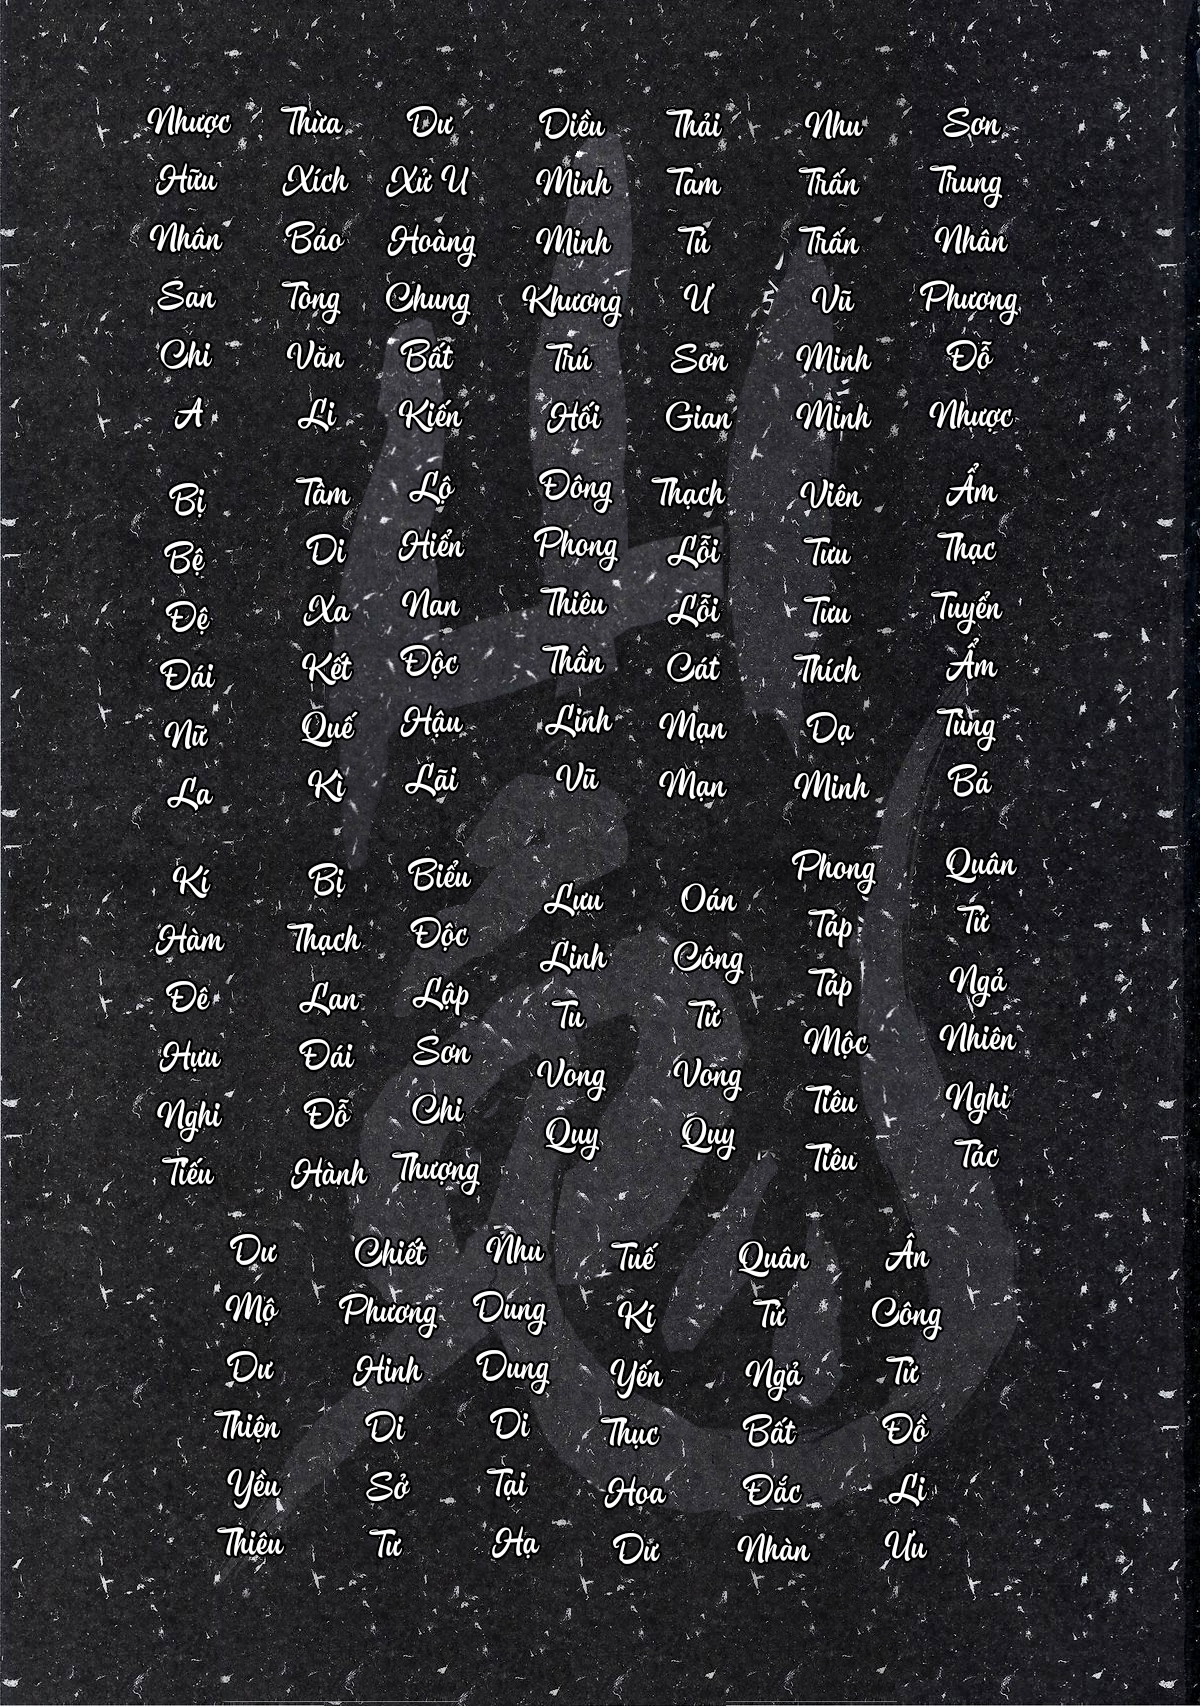 Nhược Hữu Nhân San Chi A
Bị Bệ Đệ Đái Nữ La
Kí Hàm Đê Hựu Nghi Tiếu
Dư Mộ Dư Thiện Yểu Thiêu
Thừa Xích Báo Tòng Văn Li
Tâm Di Xa Kết Quế Kì
Bị Thạch Lan Đái Đỗ Hành
Chiết Phương Hinh Di Sở Tư
Dư Xử U Hoàng Chung Bất Kiến
Lộ Hiển Nan Độc Hậu Lãi
Biểu Độc Lập Sơn Chi Thượng
Nhu Dung Dung Di Tại Hạ
Diều Minh Minh Khương Trú Hối
Đông Phong Thiêu Thần Linh Vũ
Lưu Linh Tu Vong Quy
Tuế Kí Yến Thục Hoa Dư
Thải Tam Tú Ư Sơn Gian
Thạch Lỗi Lỗi Cát Mạn Mạn
Oán Công Tử Vong Quy
Quân Tử Ngả Bất Đắc Nhàn
Nhu Trấn Trấn Vũ Minh Minh
Viên Tưu Tưu Thích Dạ Minh
Phong Táp Táp Mộc Tiêu Tiêu
Ân Công Tử Đồ Li Ưu
Sơn Trung Nhân Phương Đỗ Nhược
Ẩm Thạc Tuyển Ẩm Tùng Bá
Quân Tử Ngả Nhiên Nghi Tác